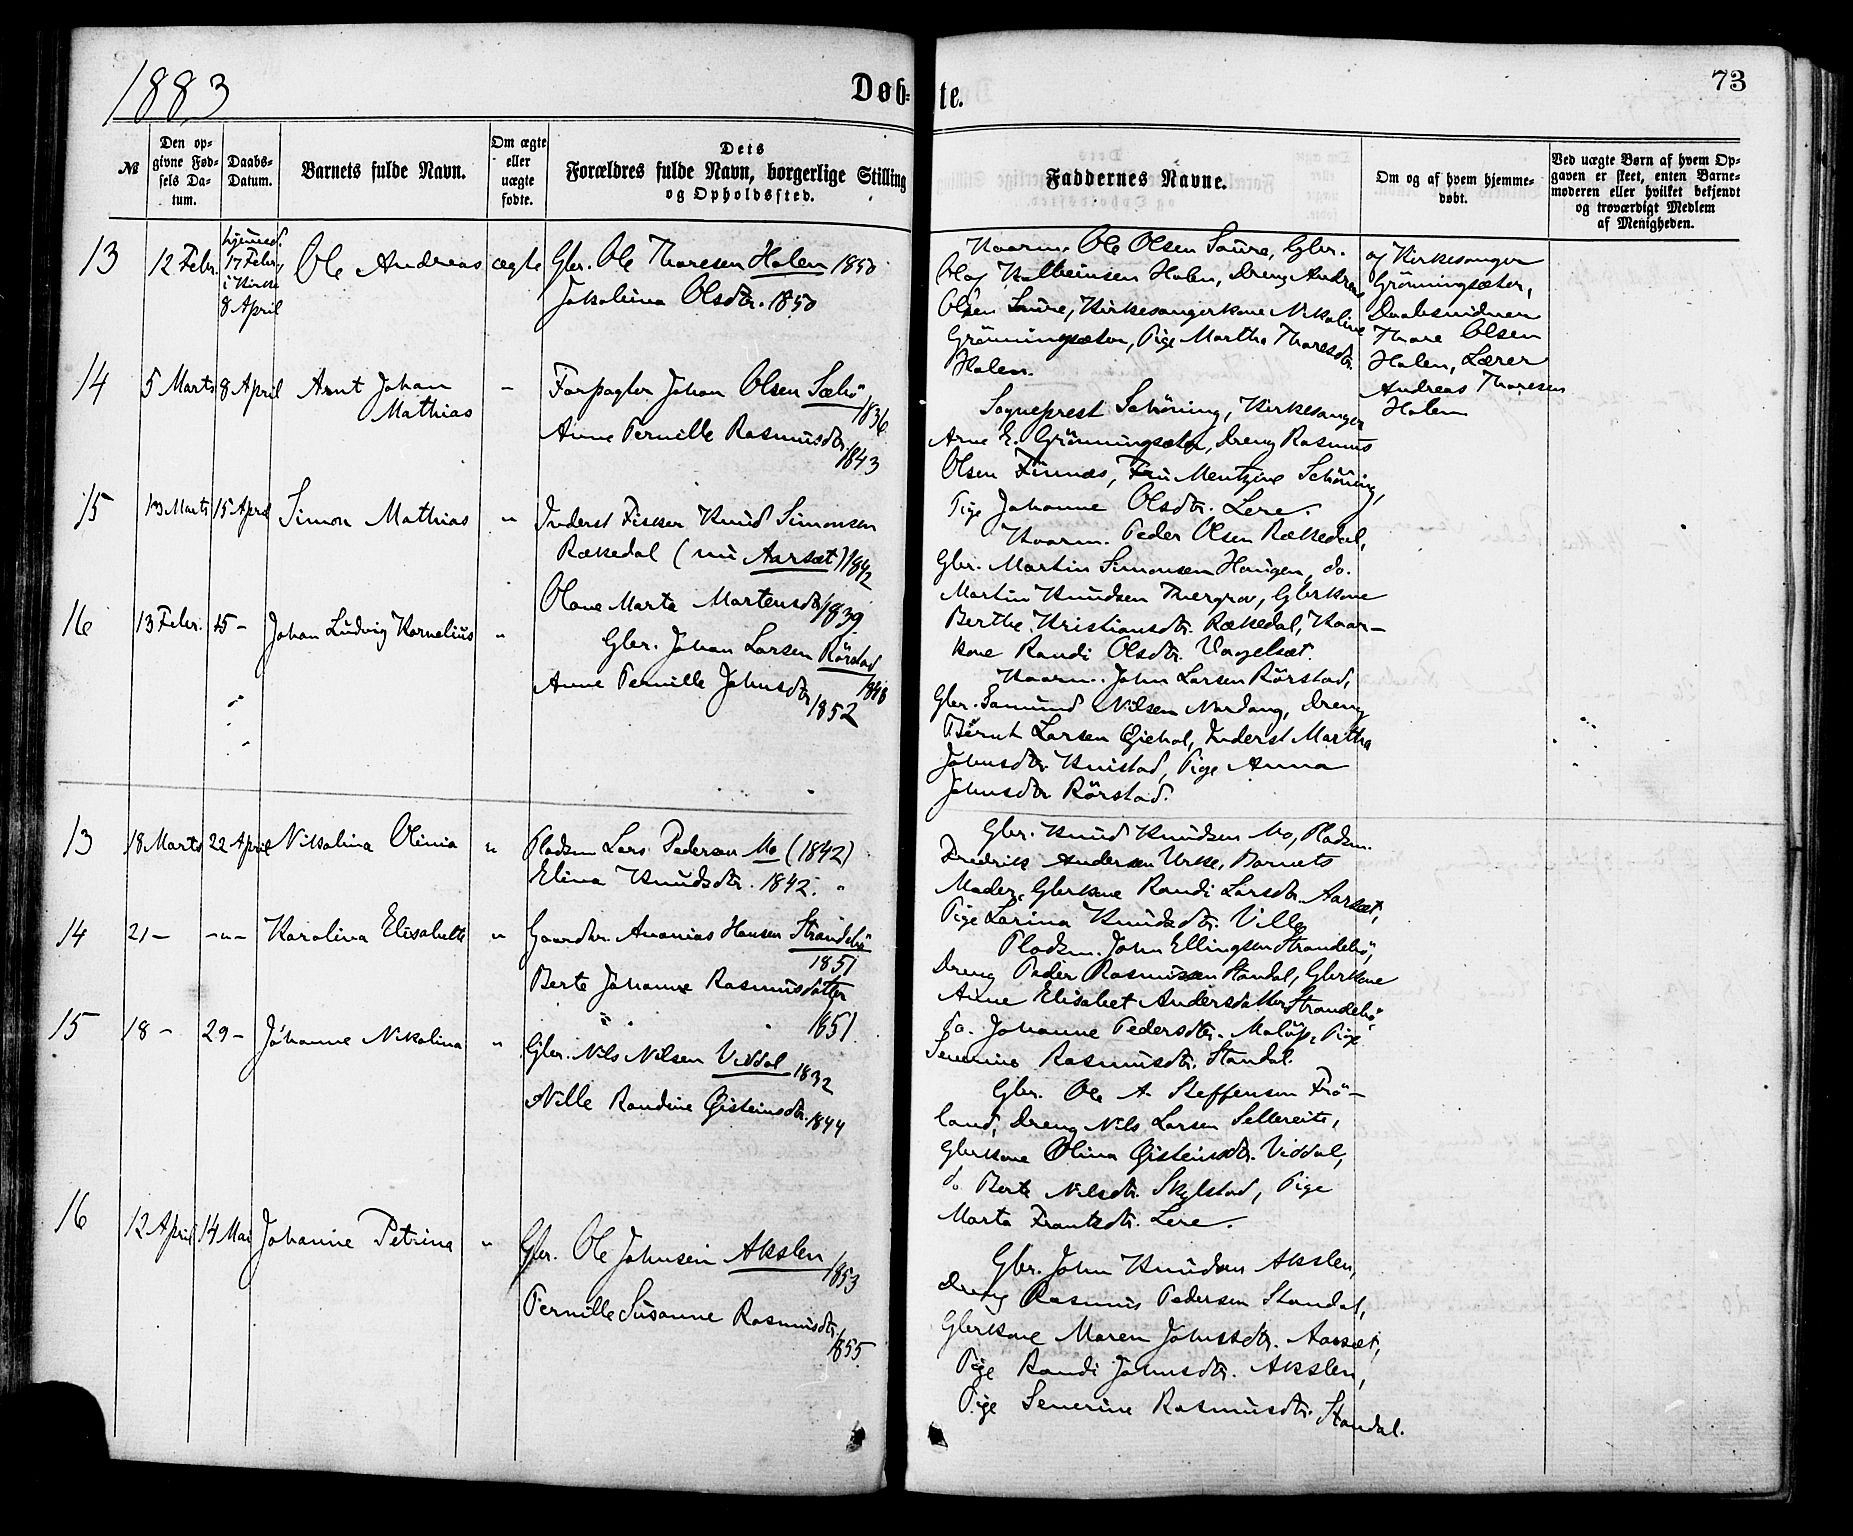 1883
Døb-
te.
73
№
Den op-
givne Fød-
sels Da-
tum.
Daabs-
Datum.
Barnets fulde Navn.
Om ægte
eller
uægte
fødte.
Dets
Forældres fulde Navn, borgerlige Stilling
og Opholdssted.
Faddernes Navne.
Om og af hvem hjemme-
døbt.
Ved uægte Børn af hvem Op-
gaven er skeet, enten Barne-
moderen eller hvilket bekjendt
og troværdigt Medlem
af Menigheden.
13
12 Febr.
hjemmed.
17 Febr,
i Kirke
8 April
Ole Andreas
ægte
Gbr. Ole Thoresen Holen 1850
Jakobina Olsdtr. 1850
Kaarm. Ole Olsen Saure, Gbr.
Olsen Saure, Kirkesangerkone Nikoline
Grönningsæter, Pige Martha Thoresdtr.
Holen.
og Kirkesanger
Grönningsæter,
Daabsvidner
Thore Olsen
Holen, Lærer
Andreas Thoresen
Holen
14
5 Marts
8 April
Arnt Johan
Mathias
-
Forpagter Johan Olsen Sæbö
1836
Anne Pernille Rasmusdtr.
1843
Sogneprest Schöning, Kirkesanger
Arne E. Grönningsæter, Dreng Rasmus
Olsen Finnes, Fru Mentzine Schöning,
Pige Johanne Olsdtr. Lere.
15
13 Marts
15 April
Simon Mathias
"
Inderst Fisker Knud Simonsen
Rækedal (nu Aarsæt) 1842
Olane Marta Martensdtr 1839
Kaarm. Peder Olsen Rækedal,
Gbr. Martin Simonsen Haugen, do.
Martin Knudsen Tuergrov, Gbrkone
Berthe Kristiansdtr. Rækedal, Kaar-
kone Randi Olsdtr. Vagelsæt.
16
13 Febr.
15 -
Johan Ludvig Kornelius
"
Gbr. Johan Larsen Rörstad
1848
Anne Pernille Johnsdtr
1852
Kaarm. John Larsen Rörstad,
Gbr. Samund Nilsen Nordang, Dreng
Bernt Larsen Öiehol, Inderst Martha
Johnsdtr. Knistad, Pige Anna
Johnsdtr Rörstad.
13
18 Marts
22 April
Nikolina Olinia
"
Pladsm Lars Pedersen Mo (1842)
Elina Knudsdtr. 1842.
Gbr. Knud Knudsen Mo, Pladsm.
Fredrik Andersen Urke, Barnets
Moder, Gbrkone Randi Larsdtr Aarsæt,
Pige Larina Knudsdtr. Ville
14
21 -
-"-
Karolina Elisabeth
"
Gaardbr. Ananias Hansen Strandebö
1851
Berte Johanne Rasmusdatter
1851.
Pladsm. John Ellingsen Strandebö,
Dreng Peder Rasmussen Standal, Gbrkone
Anne Elisabet Andersdatter Strandebö,
do. Johanne Pedersdtr. Molöp, Pige
Severine Rasmusdtr. Standal.
15
18 -
29 -
Johanne Nikolina
"
Gbr. Nils Nilsen Viddal 1832
Nille Randine Öisteinsdtr. 1844
Gbr. Ole A. Steffensen Frö-
land, Dreng Nils Larsen Sellereite,
Gbrkone Olina Öisteinsdtr. Viddal,
do Berte Nilsdtr. Skylstad, Pige
Marta Frantsdtr. Lere.
16
12 April
14 Mai
Johanne Petrina
"
Gbr. Ole Johnsen Akslen
1853
Pernille Susanne Rasmusdtr.
1855.
Gbr. John Knudsen Akslen,
Dreng Rasmus Pedersen Standal,
Gbrkone Maren Johnsdtr. Aarsæt,
Pige Randi Johnsdtr. Akslen,
Pige Severine Rasmusdtr. Standal.